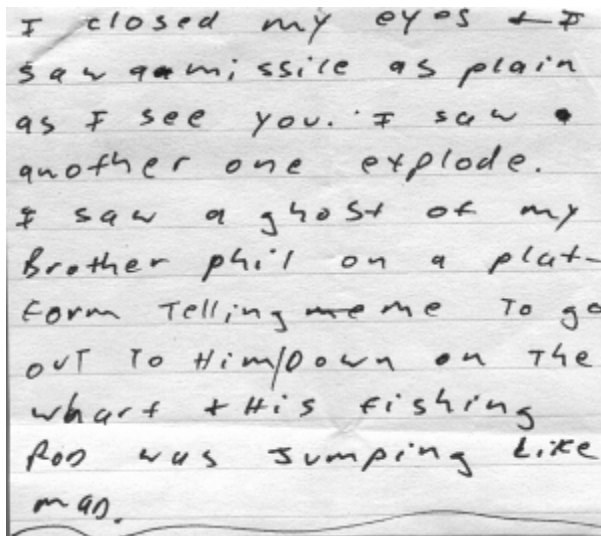 I closed my eyes + I
saw a missile as plain
as I see you. I saw
another one explode.
I saw a ghost of my
Brother phil on a plat-
form Telling me me To go
ouT To Him/Down on The
wharf + His fishing
Rod was Jumping Like
mad.